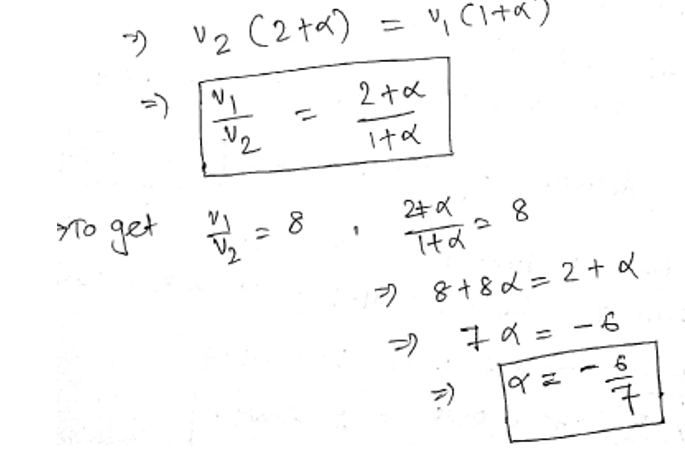 ⇒ v₂ (2+α) = v₁ (1+α)
⇒ v₁/v₂ = 2+α/1+α
⇒To get v₁/v₂ = 8 , 2+α/1+α = 8
⇒ 8+8α = 2+α
⇒ 7α = -6
⇒ α = -6/7